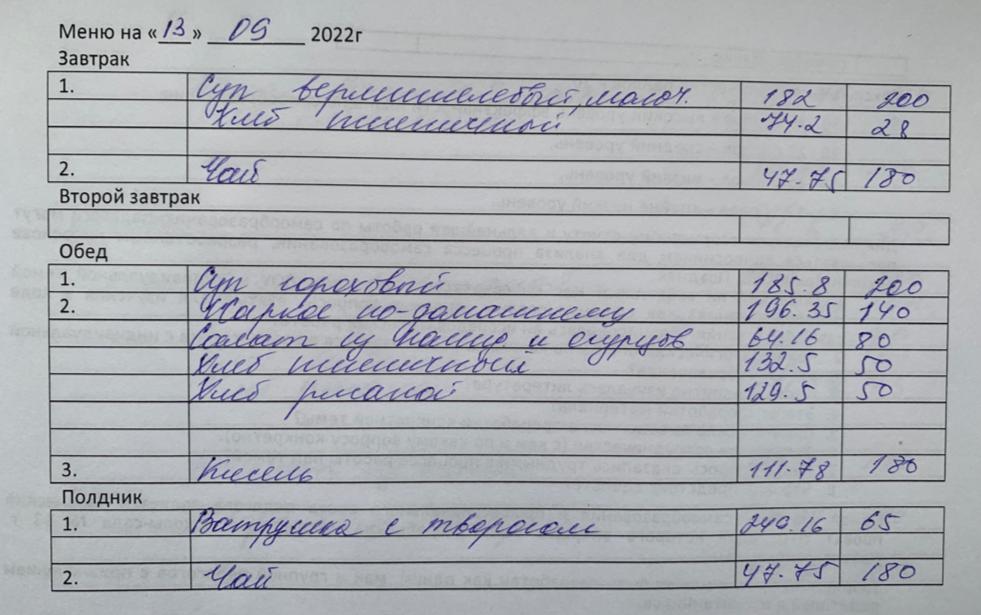 Меню на «13» 09 2022г
Завтрак
1. Суп вермишелевый, молоч. 182 200
Хлеб пшеничный 74.2 28
2. Чай 47.75 180
Второй завтрак
Обед
1. Суп гороховый 185.8 200
2. Жаркое по-домашнему 196.35 140
Салат из помид и огурцов 64.16 80
Хлеб пшеничный 132.5 50
Хлеб ржаной 129.5 50
3. Кисель 111.78 180
Полдник
1. Ватрушка с творогом 240.16 65
2. Чай 47.75 180